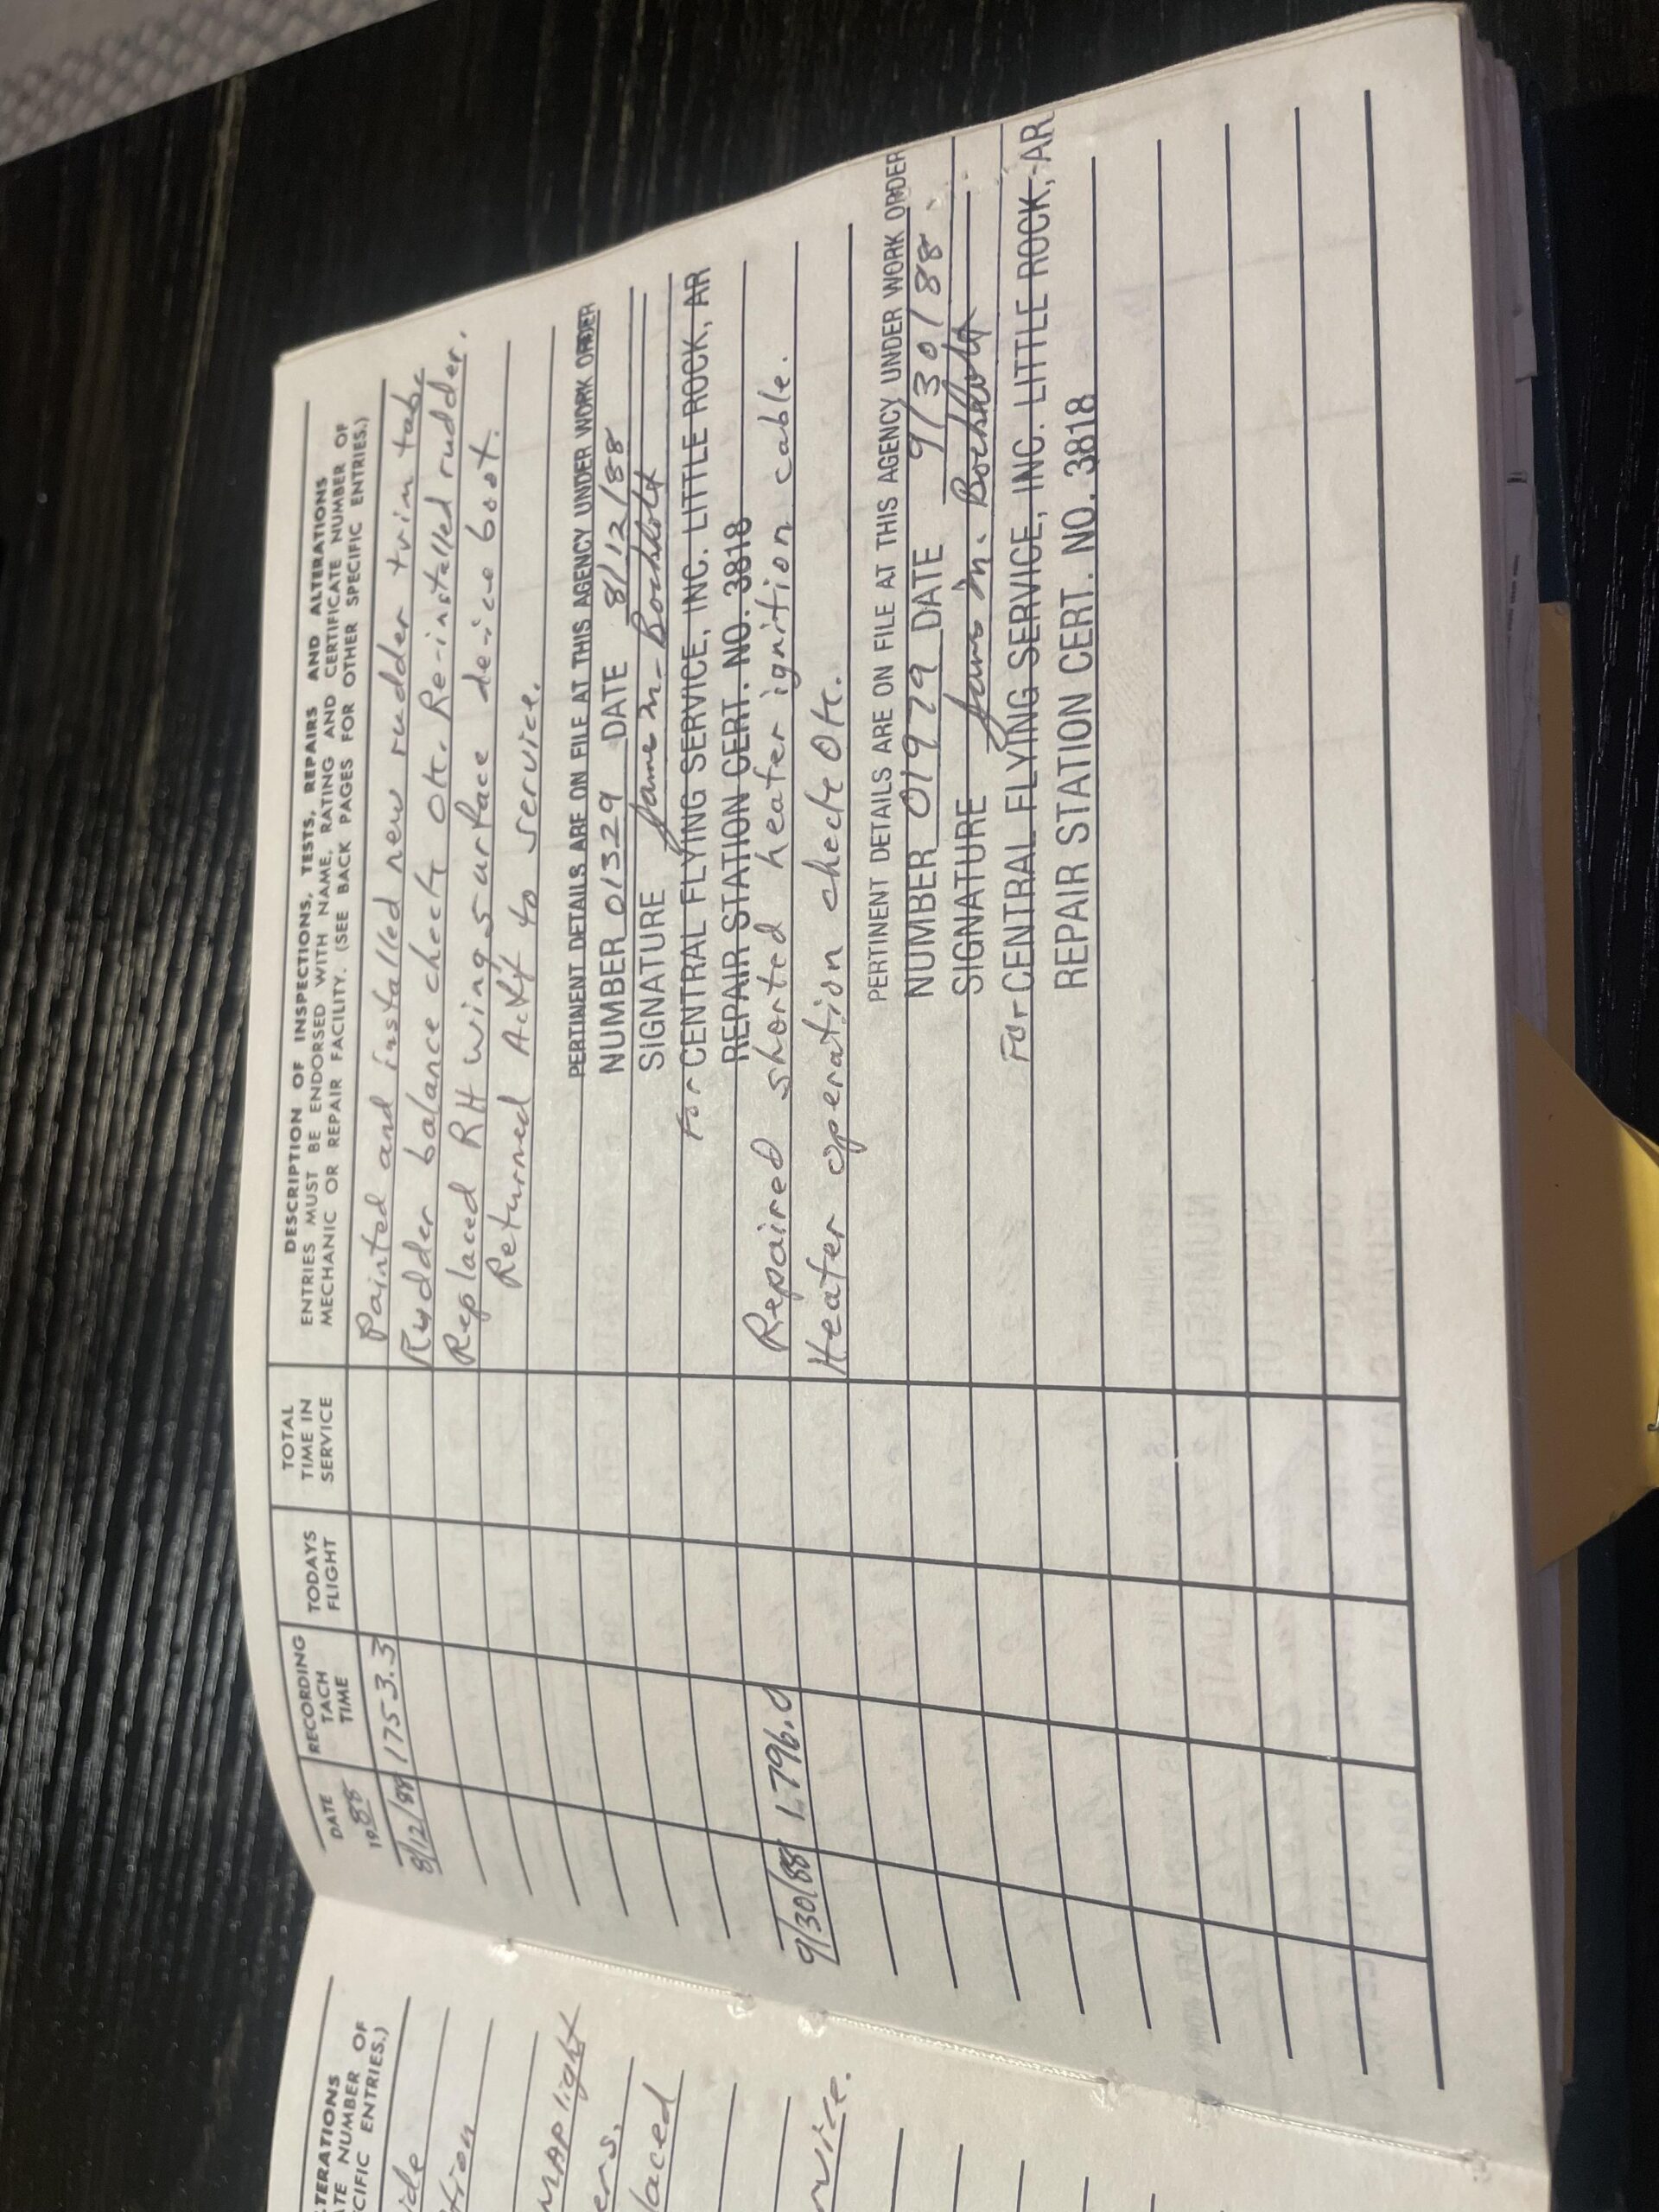 LTERATIONS
TE NUMBER OF
CIFIC ENTRIES.)
ide
tion
MAP light
ers.
laced
rvice.
DATE
1988
RECORDING
TACH
TIME
TODAYS
FLIGHT
TOTAL
TIME IN
SERVICE
DESCRIPTION OF INSPECTIONS, TESTS, REPAIRS AND ALTERATIONS
ENTRIES MUST BE ENDORSED WITH NAME, RATING AND CERTIFICATE NUMBER OF
MECHANIC OR REPAIR FACILITY. (SEE BACK PAGES FOR OTHER SPECIFIC ENTRIES.)
8/12/88 1753.3 Painted and installed new rudder trim tab.
Rudder balance check OK. Re-installed rudder.
Replaced RH wing surface de-ice boot.
Returned Acft to service.
PERTINENT DETAILS ARE ON FILE AT THIS AGENCY UNDER WORK ORDER
NUMBER 01329 DATE 8/12/88
SIGNATURE James M. Bockholt
For CENTRAL FLYING SERVICE, INC. LITTLE ROCK, AR
REPAIR STATION CERT. NO. 3818
9/30/88 1796.0 Repaired shorted heater ignition cable.
Heater operation check OK.
PERTINENT DETAILS ARE ON FILE AT THIS AGENCY UNDER WORK ORDER
NUMBER 01979 DATE 9/30/88
SIGNATURE James M. Bockholt
For CENTRAL FLYING SERVICE, INC. LITTLE ROCK, AR
REPAIR STATION CERT. NO. 3818